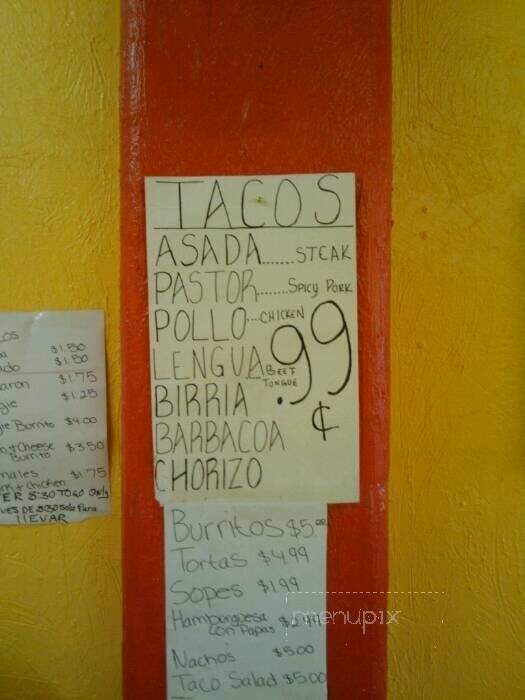 TACOS
ASADA.......STEAK
PASTOR........SPICY PORK
POLLO...CHICKEN
LENGUA BEEF TONGUE
BIRRIA
BARBACOA
CHORIZO
.99¢
Burritos $5.00
Tortas $4.99
Sopes $1.99
Hamburguesa con Papas $2.99
Nachos $5.00
Taco Salad $5.00
os
a $1.50
ado $1.50
aron $1.75
gie $1.25
ie Borrito $4.00
n+Cheese Borrito $3.50
males $1.75
rk+Chicken
TER 8:30 TO GO Only
UES DE 8:30 Solo Para
llEVAR
menupix